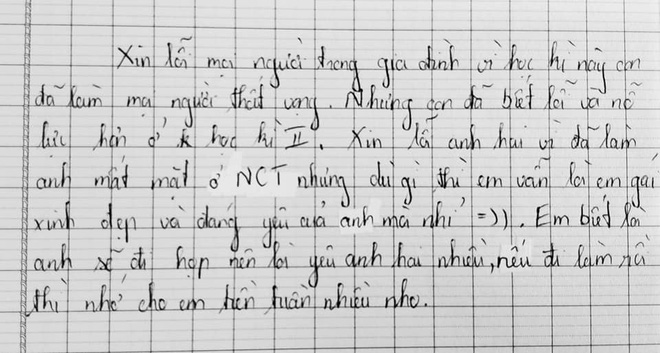 Xin lỗi mọi người trong gia đình vì học kì này con
đã làm mọi người thất vọng. Nhưng con đã biết lỗi và nỗ
lực hơn ở học kì II. Xin lỗi anh hai vì đã làm
anh mất mặt ở NCT nhưng dù gì thì em vẫn là em gái
xinh đẹp và đáng yêu của anh mà nhỉ =)). Em biết là
anh sẽ đi họp nên lại yêu anh hai nhiều, nếu đi làm rồi
thì nhớ cho em tiền tuần nhiều nho.